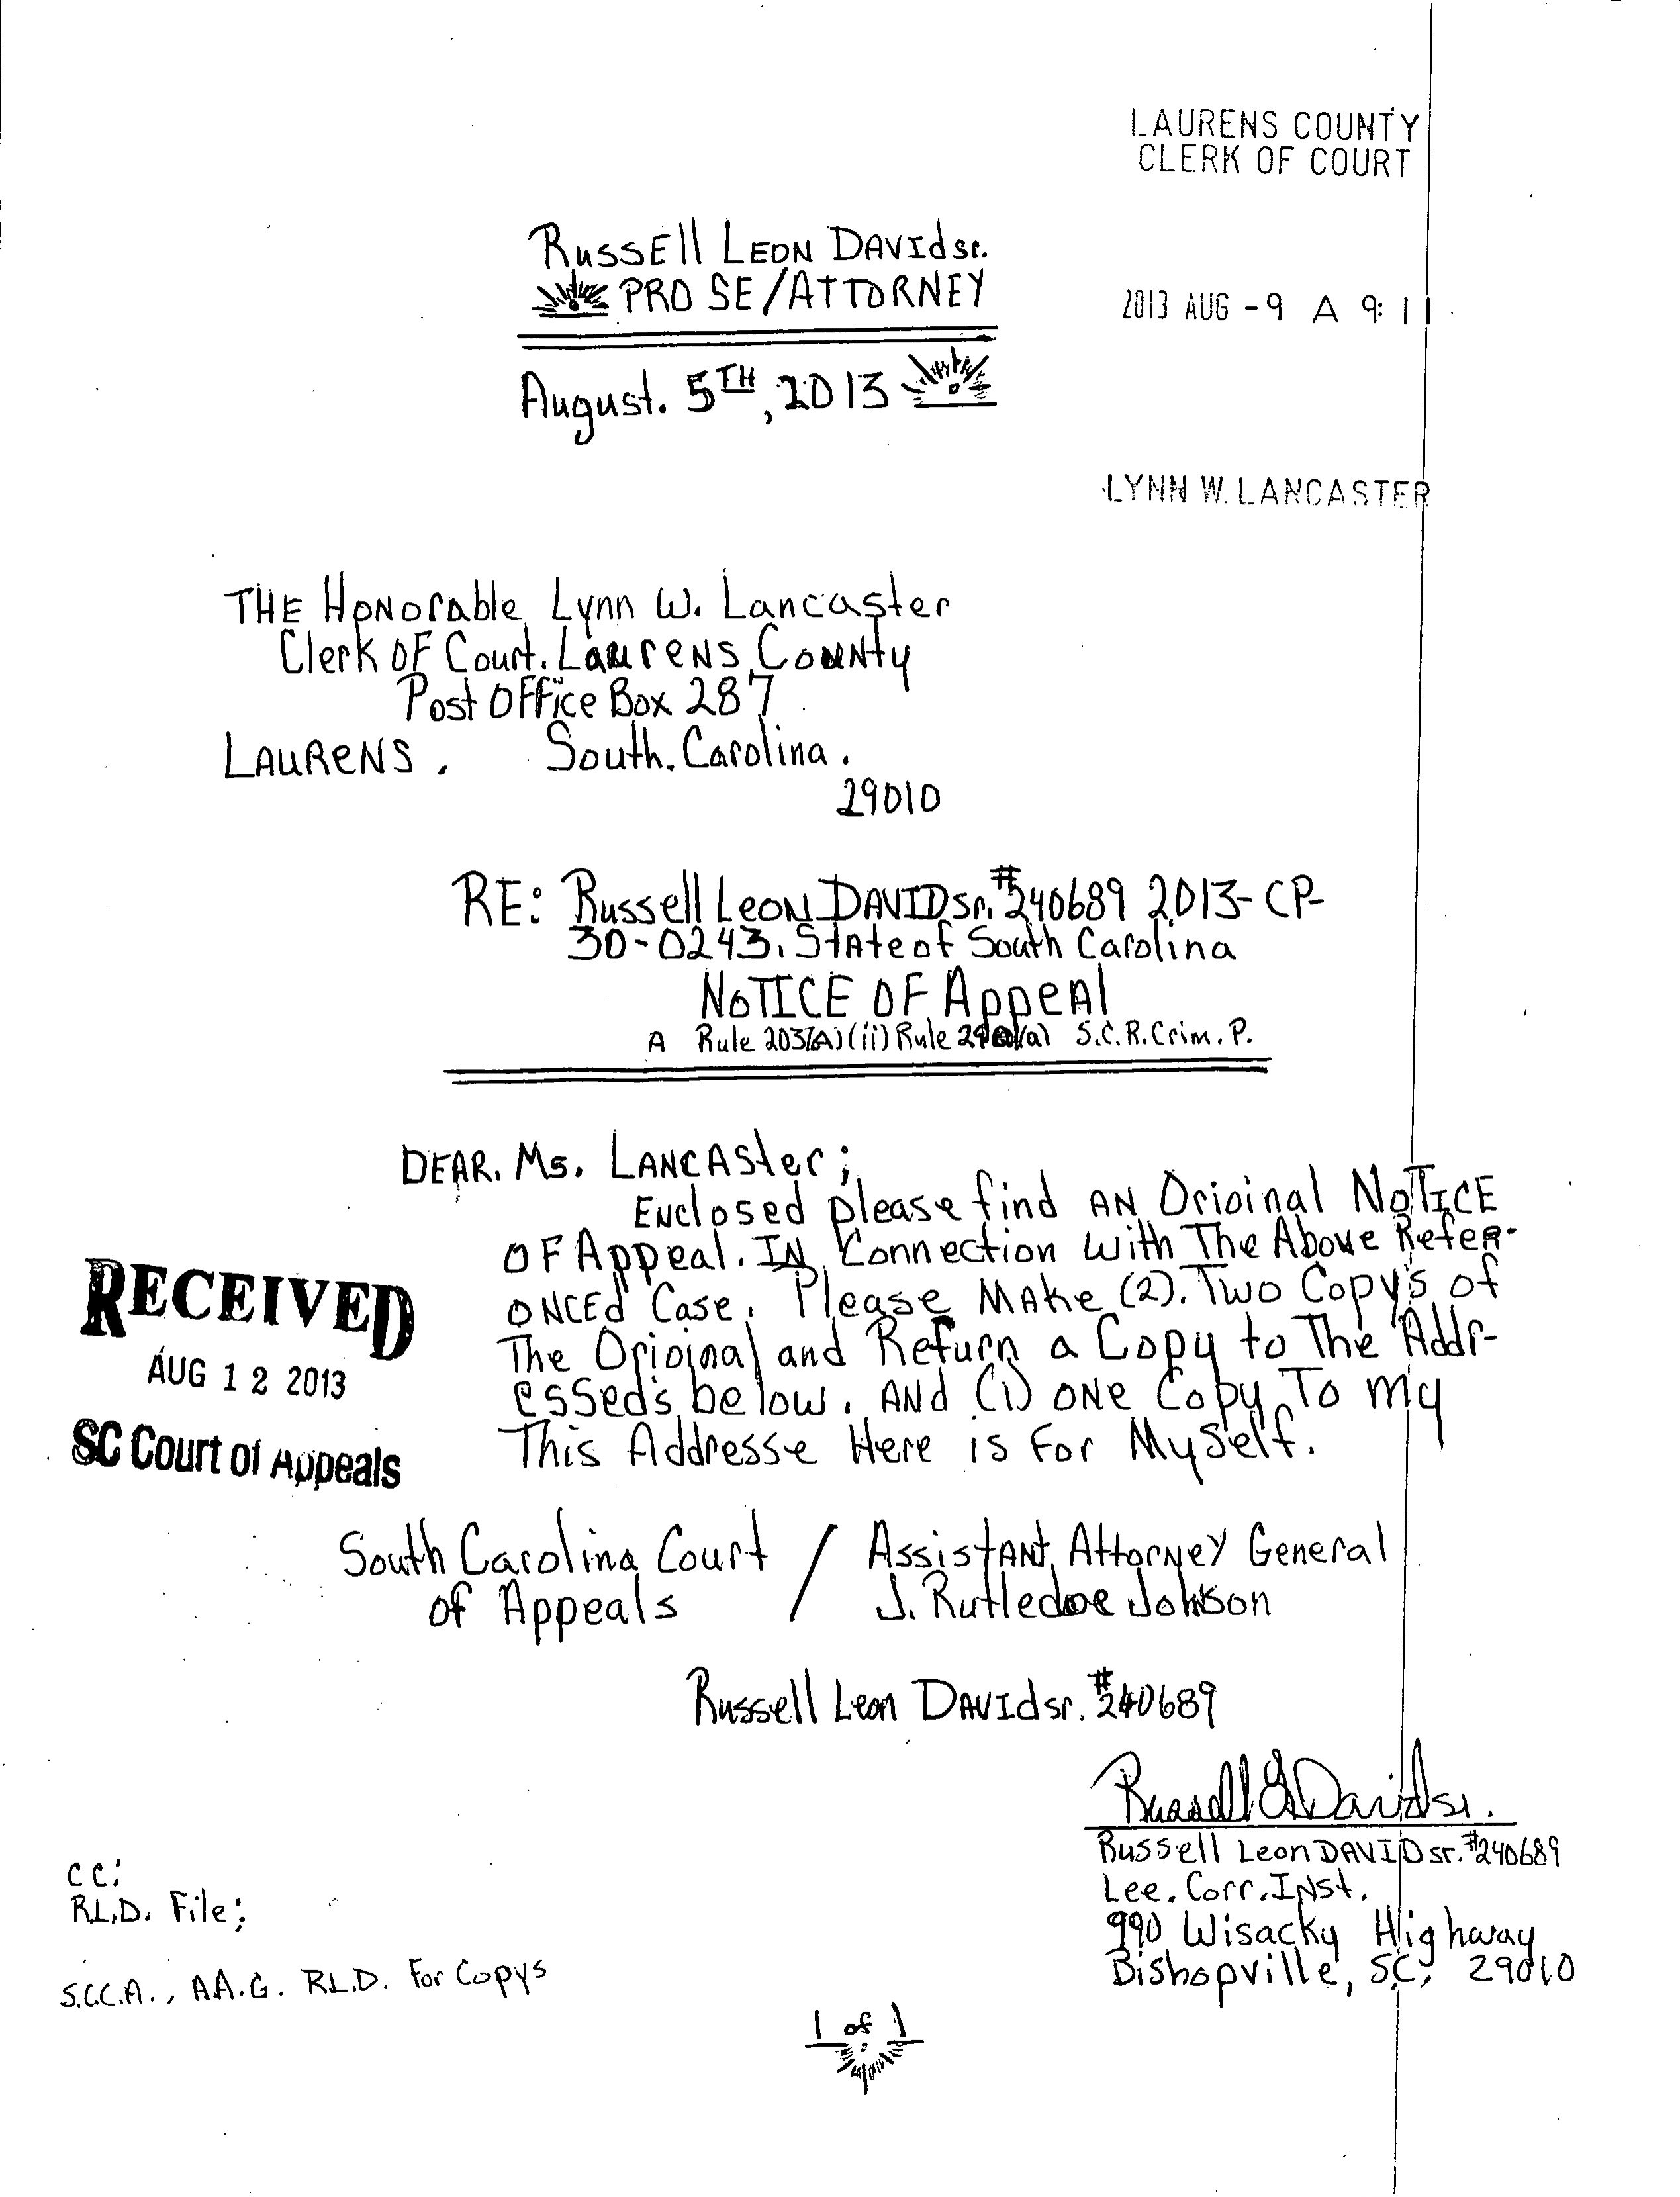 LAURENS COUNTY
CLERK OF COURT
RussEll LEON DAVIdsr.
PRO SE/ATTORNEY
2013 AUG -9 A 9:11
August. 5TH, 2013
LYNN W. LANCASTER
THE HONOrable Lynn W. Lancaster
Clerk OF Court. LaurENS County
Post OFFice Box 287
LAURENS. South. Carolina.
29010
RE: Russell LeON DAVIDsr. #240689 2013-CP-
30-0243. StAte of South Carolina
NoTICE OF AppeAl
A Rule 203(A)(ii) Rule (a) S.C.R.Crim.P.
DEAR. Ms. LANCAster;
ENclosed please find AN Orioinal NoTICE
OF Appeal. IN Connection with The Above Refer-
ONCEd Case. Please MAke (2). Two Copy's of
The Orioinal and Return a Copy to The Addr-
essed's below. AND (1) ONE Copy To my
This Addresse Here is For MySelf.
RECEIVED
AUG 12 2013
SC Court of Appeals
South Carolina Court / AssistANt Attorney General
of Appeals / J. Rutledoe Johnson
Russell Leon DAVIdsr. #240689
Russell L Davidsr.
Russell Leon DAVIDsr. #240689
Lee. Corr. INst.
990 Wisacky Highway
Bishopville, SC, 29010
CC:
R.L.D. File;
S.C.C.A., A.A.G. R.L.D. For Copys
1 of 1